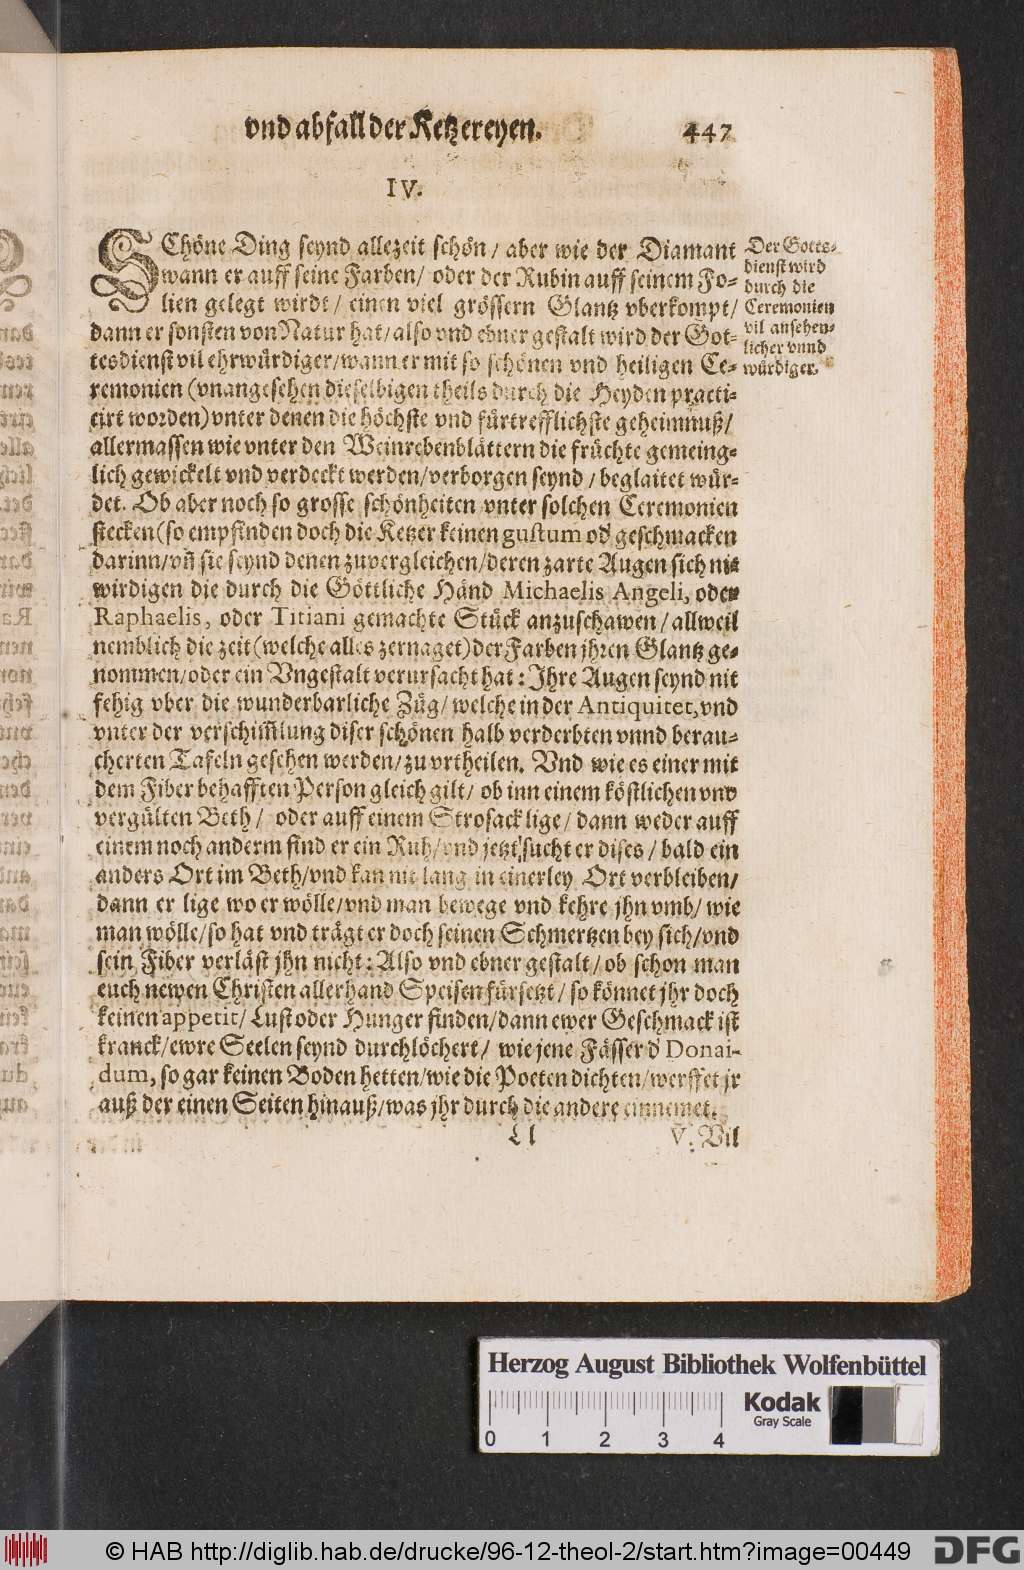 vnd abfall der Ketzereyen. 447
IV.
SChöne Ding seynd allezeit schön / aber wie der Diamant
wann er auff seine Farben / oder der Rubin auff seinem Fo-
lien gelegt wirdt / einen viel grössern Glantz vberkompt /
dann er sonsten von Natur hat / also vnd ebner gestalt wird der Got-
tesdienst vil ehrwürdiger / wann er mit so schönen vnd heiligen Ce-
remonien (vnangesehen dieselbigen theils durch die Heyden practi-
cirt worden) vnter denen die höchste vnd fürtrefflichste geheimnuß /
allermassen wie vnter den Weinrebenblättern die früchte gemeing-
lich gewickelt vnd verdeckt werden / verborgen seynd / beglaitet wür-
det. Ob aber noch so grosse schönheiten vnter solchen Ceremonien
stecken (so empfinden doch die Ketzer keinen gustum od' geschmacken
darinn / vñ sie seynd denen zuvergleichen / deren zarte Augen sich nit
wirdigen die durch die Göttliche Händ Michaelis Angeli, oder
Raphaelis, oder Titiani gemachte Stück anzuschawen / allweil
nemblich die zeit (welche alles zernaget) der Farben jhren Glantz ge-
nommen / oder ein Vngestalt verursacht hat : Ihre Augen seynd nit
fehig vber die wunderbarliche Züg / welche in der Antiquitet, vnd
vnter der verschim̃lung diser schönen halb verderbten vnnd berau-
cherten Tafeln gesehen werden / zu vrtheilen. Vnd wie es einer mit
dem Fiber behafften Person gleich gilt / ob inn einem köstlichen vnd
vergülten Beth / oder auff einem Strosack lige / dann weder auff
einem noch anderm find er ein Ruh / vnd jetzt sucht er dises / bald ein
anders Ort im Beth / vnd kan nit lang in einerley Ort verbleiben /
dann er lige wo er wölle / vnd man bewege vnd kehre jhn vmb / wie
man wölle / so hat vnd trägt er doch seinen Schmertzen bey sich / vnd
sein Fiber verläst jhn nicht : Also vnd ebner gestalt / ob schon man
euch newen Christen allerhand Speisen fürsetzt / so könnet jhr doch
keinen appetit / Lust oder Hunger finden / dann ewer Geschmack ist
kranck / ewre Seelen seynd durchlöchert / wie jene Fässer d' Donai-
dum, so gar keinen Boden hetten / wie die Poeten dichten / werffet jr
auß der einen Seiten hinauß / was jhr durch die andere einnemet.
Ll V. Vil
Der Gotts-
dienst wird
durch die
Ceremonien
vil ansehen-
licher vnnd
würdiger.
Herzog August Bibliothek Wolfenbüttel
Kodak
Gray Scale
0 1 2 3 4
© HAB http://diglib.hab.de/drucke/96-12-theol-2/start.htm?image=00449
DFG